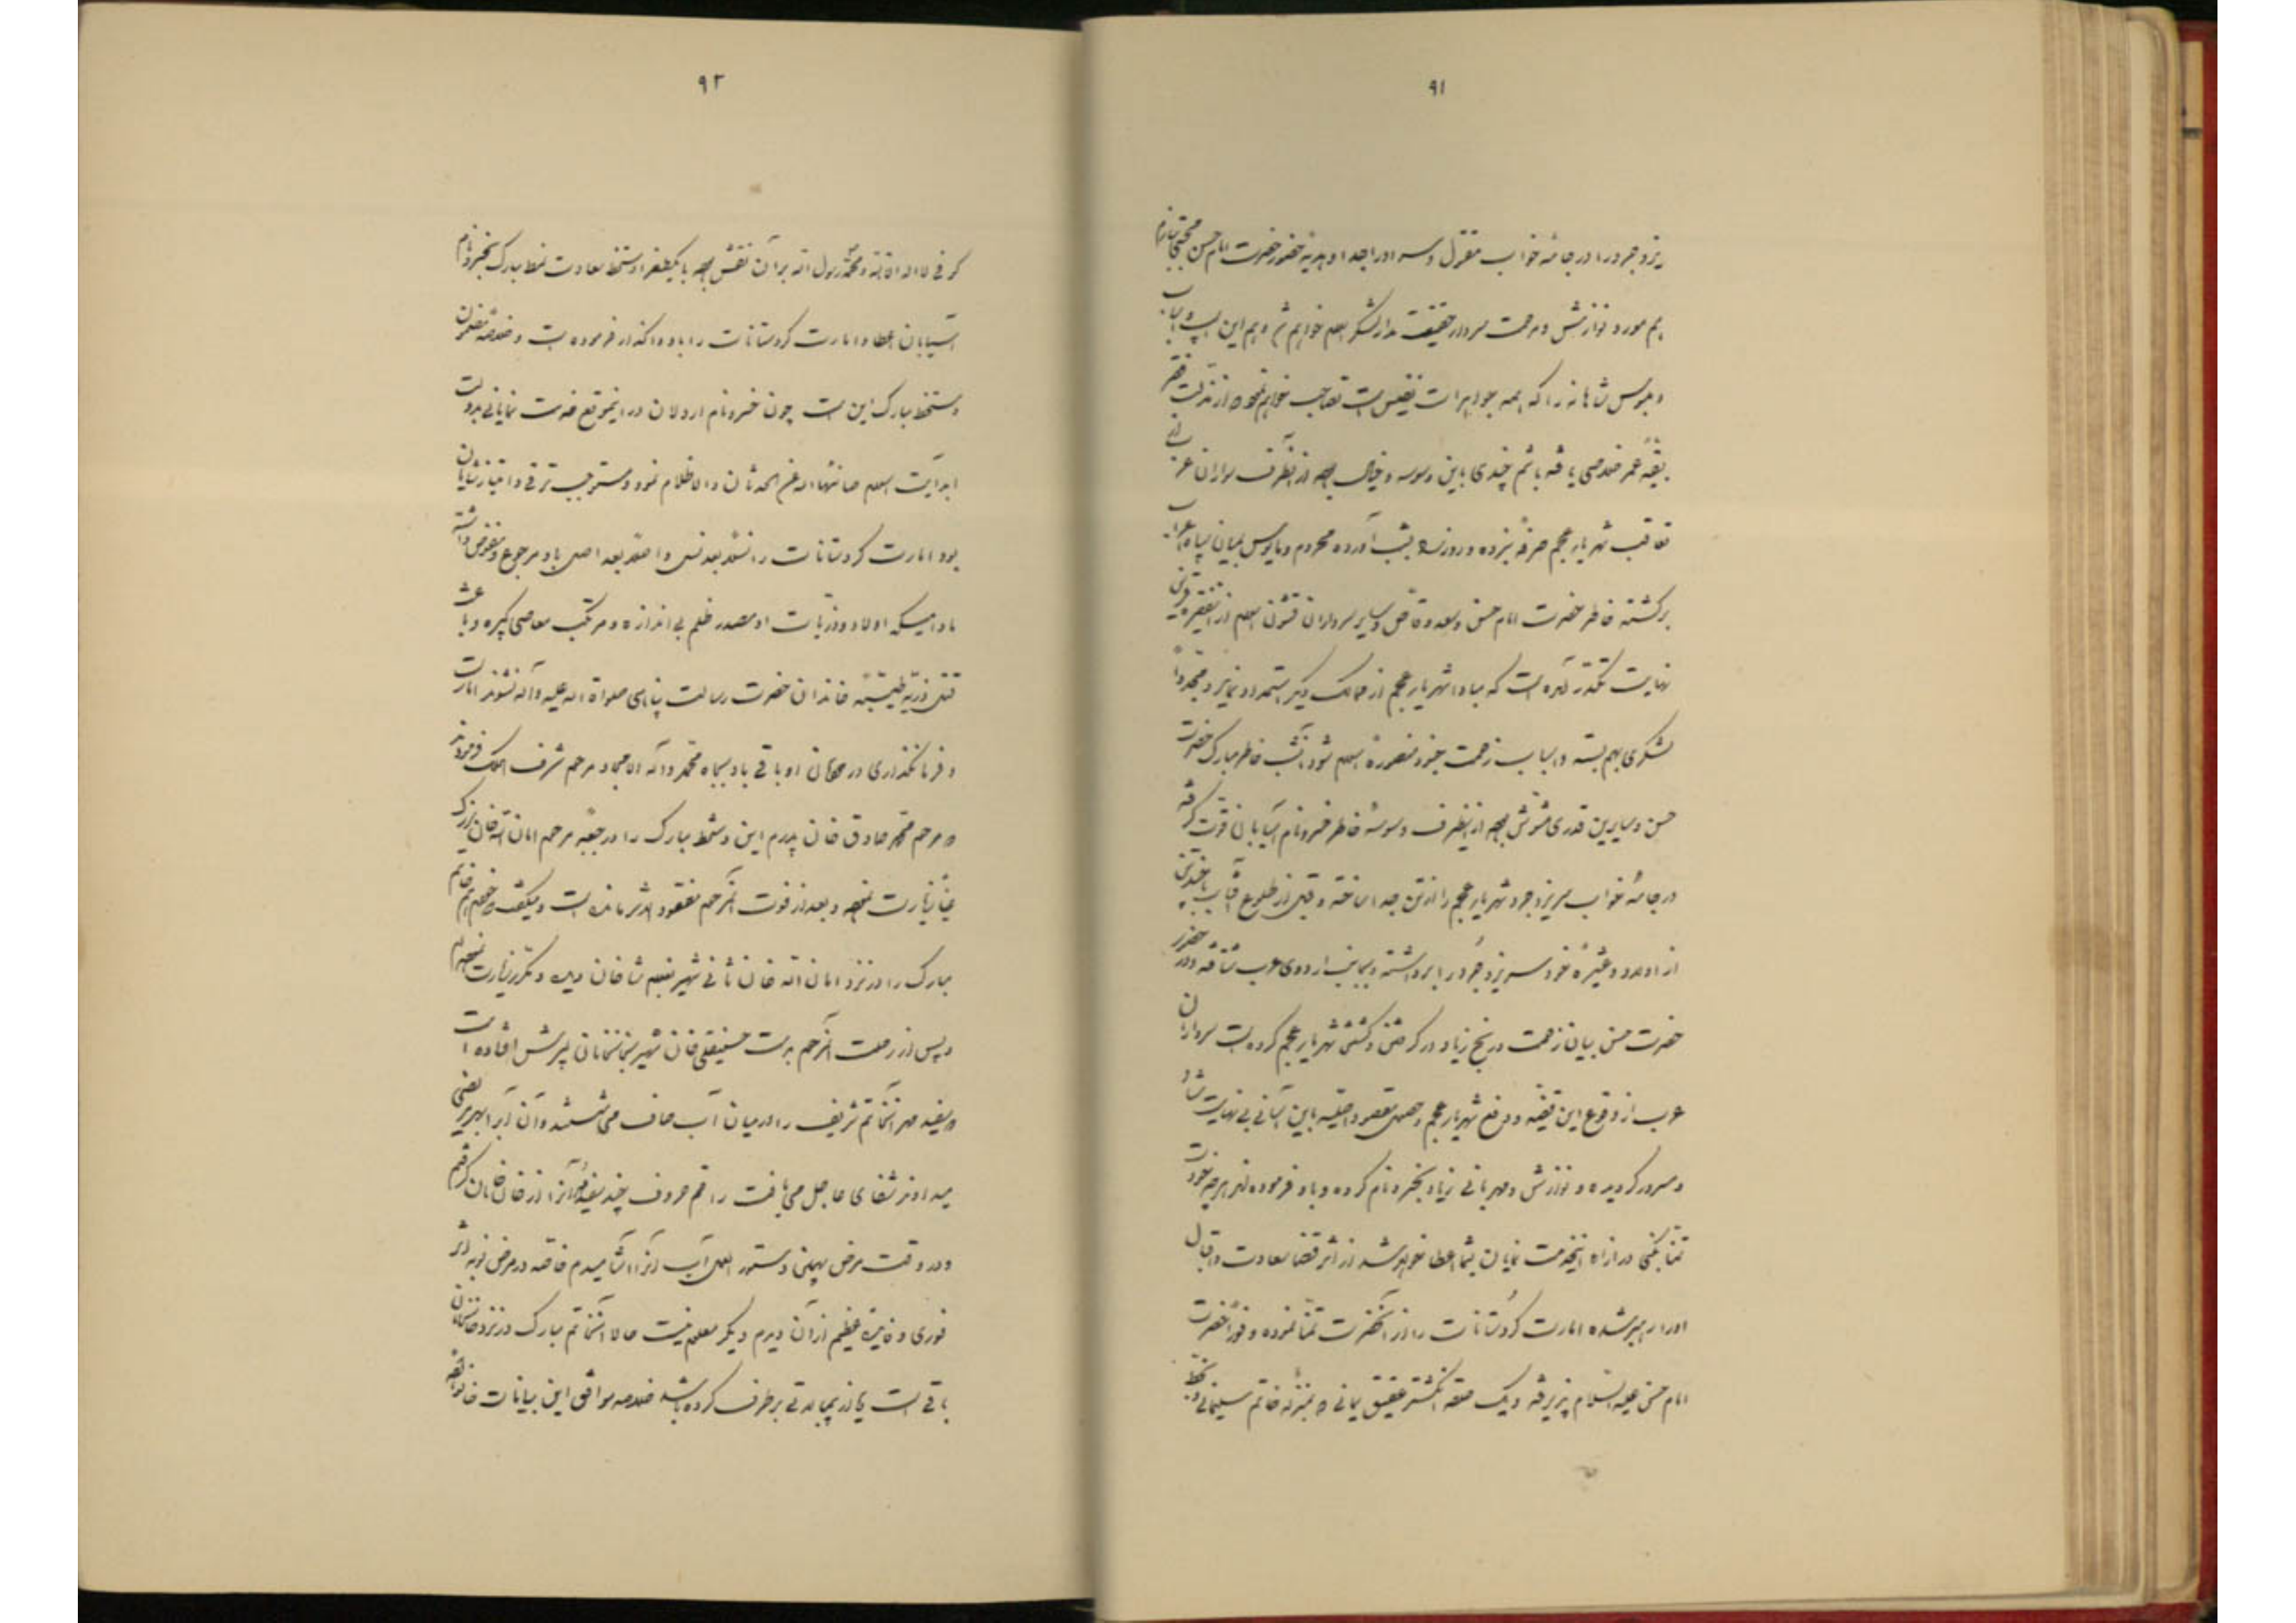 ۹۱
یزدجرد را در جامهٔ خواب مقتول و سر او را جدا و هدیهٔ حضور حضرت امام حسن مجتبی سازم
هم مورد نوازش و مرحمت سردار حقیقت مدار لشکر اسلام خواهم شد و هم این اسب و اسباب
و ملبوس شاهانه را که همه جواهرات نفیس است تصاحب خواهم نمود و از مذلت فقر
بقیهٔ عمر خلاصی یافته باشم چندی باین وسوسه و خیال بوده از آنطرف سواران عرب از
تعاقب شهریار عجم صرفهٔ نبرده و روز را بشب آورده محروم و مأیوس بمیان سپاه اعراب
برگشته خاطر حضرت امام حسن و سعد وقاص و سایر سرداران قشون اسلام از این فقره
نهایت مکدر آمده است که مبادا شهریار عجم از ممالک دیگر استمداد نماید و مجدداً
لشکری بهم بسته و اسباب زحمت جنود منصورهٔ اسلام شود آنشب خاطر مبارک حضرت
حسن و سایرین قدری مشوش بوده از اینطرف وسوسهٔ خاطر خسرو نام آسیابان قوت گرفته
در جامهٔ خواب سر یزدجرد شهریار عجم را از تن جدا ساخته و قبل از طلوع آفتاب با چندی
از اولاد و عشیرهٔ خود سر یزدجرد را برداشته و بجانب اردوی عرب شتافته و در حضور
حضرت حسن بیان زحمت و رنج زیاد در گرفتن و کشتن شهریار عجم کرده است سرداران
عرب از وقوع این قضیه و دفع شهریار عجم و حصول مقصود اصلیه باین آسانی بی نهایت شاد
و مسرور گردیده و نوازش و مهربانی زیاد بخسرو نام کرده و باو فرموده اند هر چه خود
تمنا بکنی در ازاء این خدمت نمایان بشما عطا خواهد شد از اثر قضا سعادت و اقبال
او را رهبر شده امارت کردستانات را از آنحضرت تمنا نموده و فوراً حضرت
امام حسن علیه السلام پذیرفته و یک حلقه انگشتر عقیق یمانی که بمنزله خاتم سلیمانی و بخط
۹۲
کوفی لا اله الا الله و محمد رسول الله بر آن نقش بوده با یکطغرا دستخط سعادت نمط مبارک بخسرو نام
آسیابان عطا و امارت کردستانات را باو واگذار فرموده است و خلاصهٔ مضمون
دستخط مبارک این است چون خسرو نام اردلان در اینموقع خدمت نمایانی بدولت
ابد آیت اسلام صانها الله عن الحدثان و الاظلام نمود و مستوجب ترقی و امتیاز شایان
بود امارت کردستانات را نسلاً بعد نسل و اصلاً بعد اصل باو مرجوع و مفوض داشته
مادامیکه اولاد و ذریات او مصدر ظلم بی اندازه و مرتکب معاصی کبیره و باعث
قتل ذریه طیبه خاندان حضرت رسالت پناهی صلواة الله علیه و آله نشوند امارت
و فرمانگذاری در خاندان او باقی باد بجاه محمد و آله الامجاد مرحوم شرف الملک فرمودند
که مرحوم محمد صادق خان پدرم این دستخط مبارک را در جعبهٔ مرحوم امان الله خان بزرگ
عیاناً زیارت نموده و بعد از فوت آنمرحوم مفقود الاثر مانده است و میگفت خودم هم خاتم
مبارک را در نزد امان الله خان ثانی شهیر بغلام شاه خان دیده و مکرر زیارت نموده‌ام
و پس از رحلت آنمرحوم بدست حسینقلی خان شهیر بخانخانان پسرش افتاده است
که بیفید مهر آنخاتم شریف را در میان آب صاف می شستند و آن آب را بهر مریضی
میدادند شفای عاجل می یافت راقم حروف چند دفعه آنرا از خان خانان گرفتم
و در وقت مرض بهمان دستور العمل آب آنرا آشامیدم خاصه در مرض نوبه اثر
فوری و فایدهٔ عظیم از آن دیدم دیگر معلوم نیست حالا آنخاتم مبارک در نزد خانخانان
باقی است یا از بیمبالاتی برطرف کرده باشد خلاصه موافق این بیانات خانواده